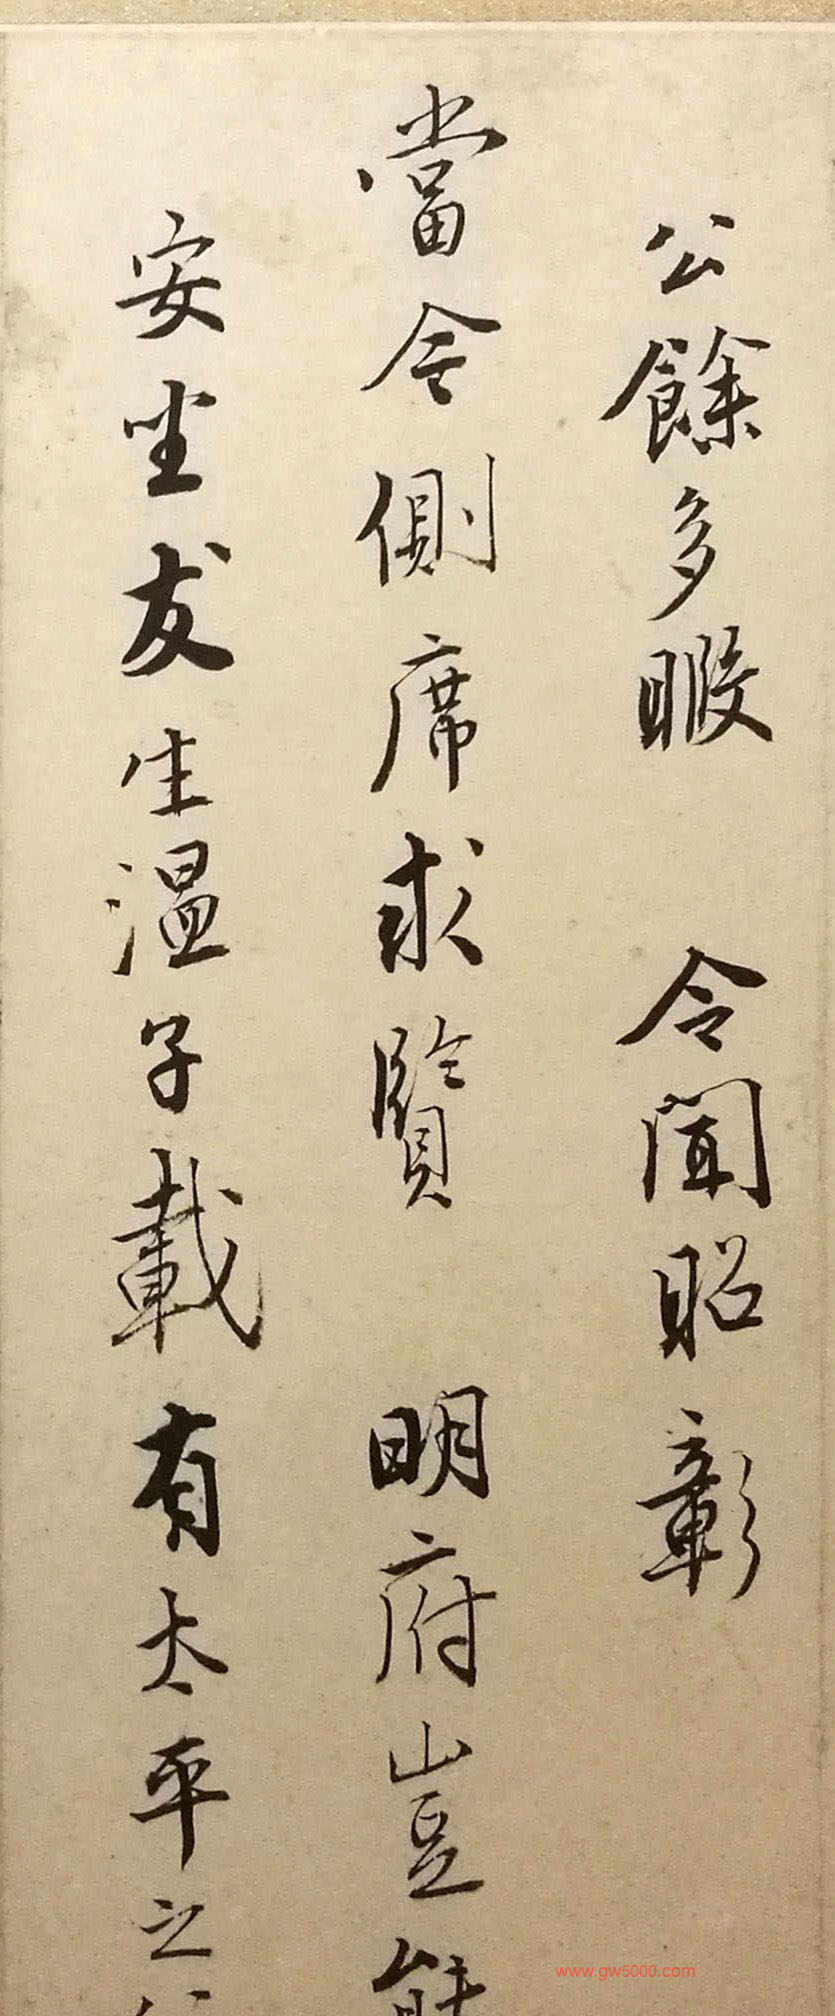 公餘多暇 令聞昭彰
當今側席求賢 明府豈能
安坐友生溫子載有太平之
www.gw5000.com